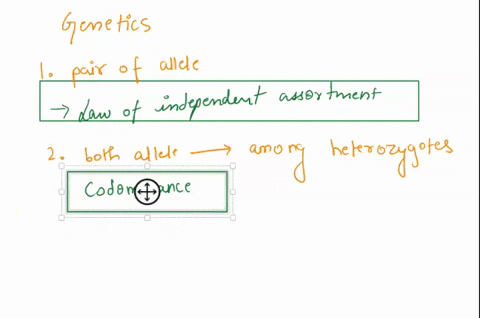 Genetics
1. pair of allele
→ Law of independent assortment
2. both allele → among heterozygotes